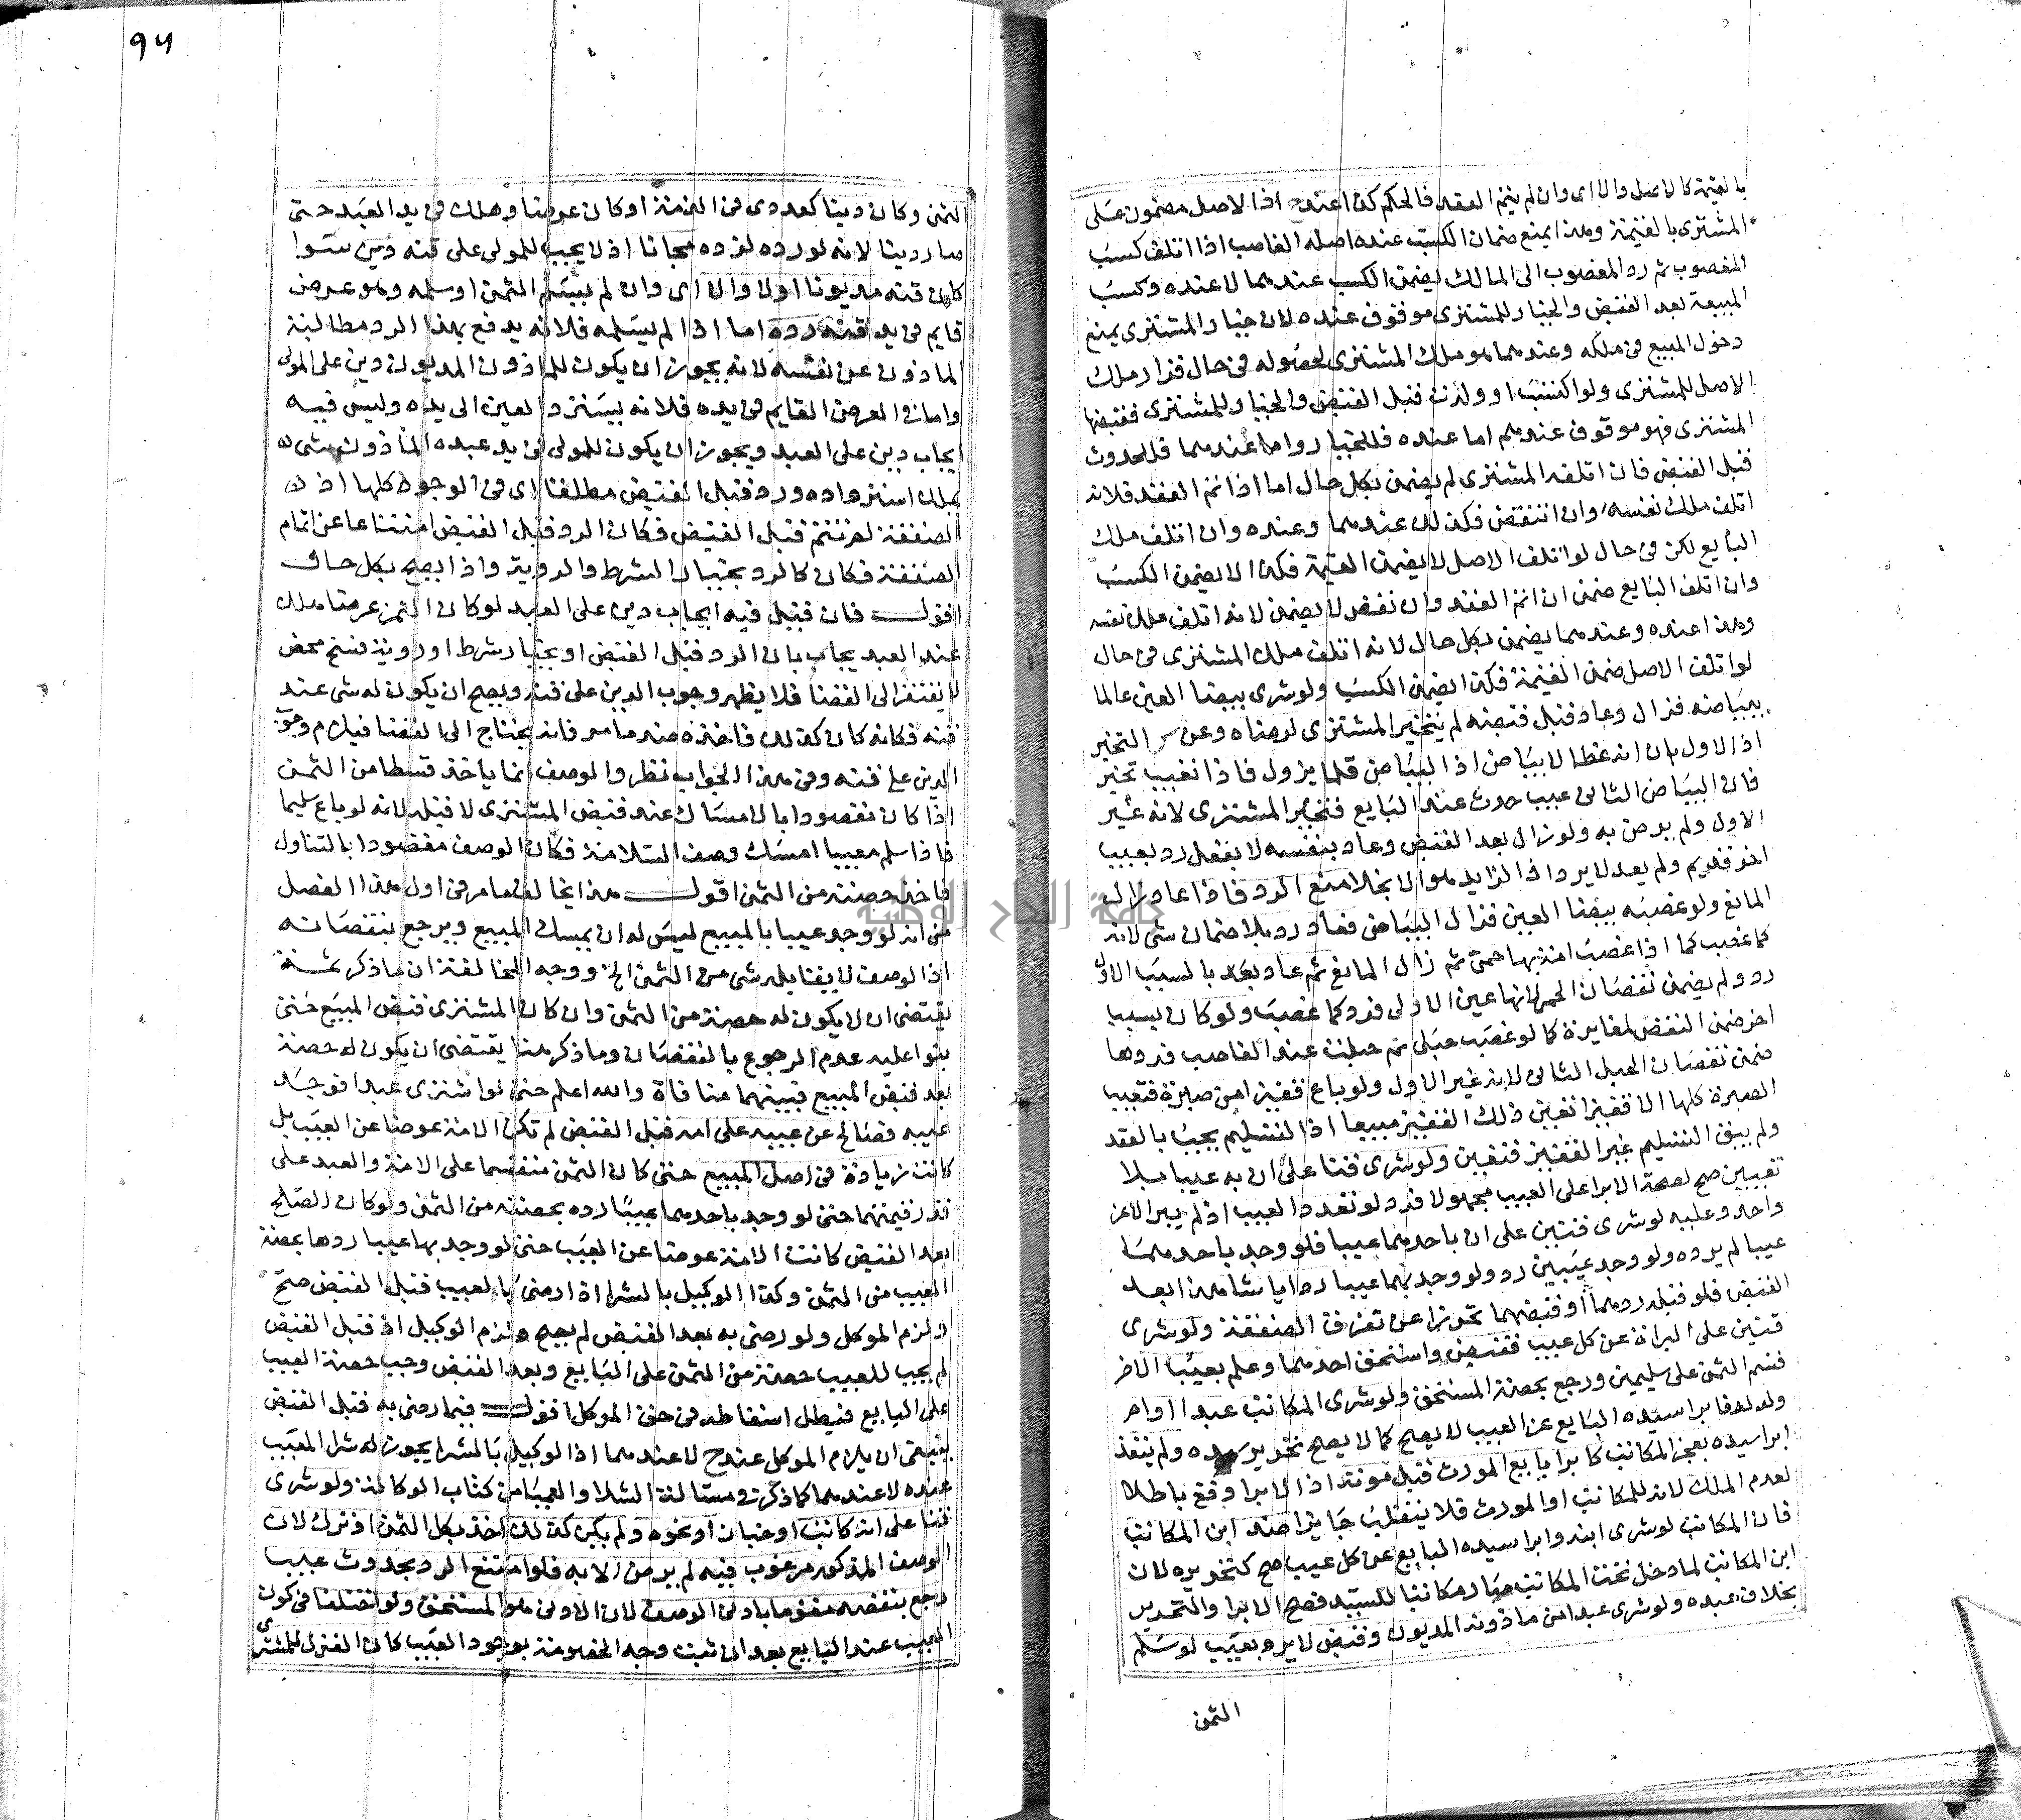 بالقيمة كالاصل والا اى وان لم يتم العقد فالحكم كذا عند ح اذا الاصل مضمون على
المشترى بالقيمة وهذا يمنع ضمان الكسب عنده اصله الغاصب اذا اتلف كسب
المغصوب ثم رد المغصوب الى المالك يضمن الكسب عندهما لا عنده وكسب
المبيعة بعد القبض والخيار للمشترى موقوف عنده لان خيار المشترى يمنع
دخول المبيع فى ملكه وعندهما هو ملك المشترى لحصوله فى حال قرار ملك
الاصل للمشترى ولو اكتسب او ولدت قبل القبض والخيار للمشترى فقبضها
المشترى فهو موقوف عندهم اما عنده فللخيار واما عندهما فللحدوث
قبل القبض فان اتلفه المشترى لم يضمن بكل حال اما اذا تم العقد فلانه
اتلف ملك نفسه وان انتقض فكذلك عندهما وعنده وان اتلف ملك
البايع لكن فى حال لو اتلف الاصل لا يضمن القيمة فكذا لا يضمن الكسب
وان اتلف البايع ضمن ان اتم العقد وان نقض لا يضمن لانه اتلف ملك نفسه
وهذا عنده وعندهما يضمن بكل حال لانه اتلف ملك المشترى فى حال
لو اتلف الاصل ضمن القيمة فكذا يضمن الكسب ولو شرى بيضا العين عالما
ببياضه فزال وعاد قبل قبضه لم يتخير المشترى لرضاه وعن س التخير
اذ الاول بان انه غطا لا بياض اذ البياض قلما يزول فاذا تغيب تخير
فان البياض الثانى عيب حدث عند البايع فتخير المشترى لانه غير
الاول ولم يرض به ولو زال بعد القبض وعاد بنفسه لا بفعل رد بعيب
اخر قديم ولم يعد لا يرد اذ الزايد هو الاخلا منع الرد فاذا عاد زال
المانع ولو غصبه بيضا العين فزال البياض فعاد رد بلا ضمان شى لانه
كما غصب كما اذا غصب امة بها حمى ثم زال المانع ثم عاد بعد بالسبب الاول
رد ولم يضمن نقصان الحمى لانها عين الاولى فرد كما غصب ولو كان بسبب
اخر ضمن النقص لمغايرة كا لو غصب حبلى ثم حبلت عند الغاصب فردها
ضمن نقصان الحبل الثانى لانه غير الاول ولو باع قفيزا من صبرة فتعيب
الصبرة كلها الا قفيزا تعين ذلك القفيز مبيعا اذ التسليم يجب بالعقد
ولم يبق التسليم غير القفيز فتعين ولو شرى قنا على ان به عيبا بلا
تعيين صح لصحة الابرا على العيب مجهولا فرد لو تعدد العيب اذ لم يبرا الا عن
واحد وعليه لو شرى قنين على ان باحدهما عيبا فلو وجد باحدهما
عيبا لم يرده ولو وجد عيبين رد ولو وجد بهما عيبا رد ايا شا هذا بعد
القبض فلو قبله ردهما او قبضهما تحرزا عن تفرق الصفقة ولو شرى
قنين على البراة عن كل عيب فقبض واستحق احدهما وعلم بعيب الاخر
قسم الثمن على سليمين ورجع بحصة المستحق ولو شرى المكاتب عبدا او ام
ولد له فابرا سيده البايع عن العيب لا يصح كما لا يصح تحريره ولم ينفذ
ابرا سيده بعجز المكاتب كابرا بايع المورث قبل موته اذ الابرا وقع باطلا
لعدم الملك لانه للمكاتب او المورث فلا ينقلب جايزا ضد ابن المكاتب
فان المكاتب لو شرى ابنه وابرا سيده البايع عن كل عيب صح كتحريره لان
ابن المكاتب لما دخل تحت المكاتب صار مكاتبا للسيد فصح الابرا والتحرير
بخلاف عبده ولو شرى عبدا من ماذونه المديون وقبض لا يرد بعيب لو سلم
الثمن
جامعة النجاح الوطنية
٩٦
الثمن وكان دينا كعددى فى الذمة او كان عرضا وهلك فى يد العبد حتى
صار دينا لانه لو رده لرده مجانا اذ لا يجب للمولى على قنه دين سوا
كان قنه مديونا اولا والا اى وان لم يسلم الثمن او سلمه وهو عرض
قايم فى يد قنه رده اما اذا لم يسلمه فلانه يدفع بهذا الرد مطالبة
الماذون عن نفسه لانه يجوز ان يكون للماذون المديون دين على المولى
واما فى العرض القايم فى يده فلانه يسترد العين الى يده وليس فيه
ايجاب دين على العبد ويجوز ان يكون للمولى فى يد عبده الماذون شى
يملك استرداده ورد قبل القبض مطلقا اى فى الوجوه كلها اذ
الصفقة لم تتم قبل القبض فكان الرد قبل القبض امتناعا عن اتمام
الصفقة فكان كالرد بخيار الشرط والروية واذا يصح بكل حال
اقول فان قيل فيه ايجاب دين على العبد لو كان الثمن عرضا هلك
عند العبد يجاب بان الرد قبل القبض او بخيار شرط او روية فسخ محض
لا يفتقر الى القضا فلا يظهر وجوب الدين على قنه ويصح ان يكون له شى عند
قنه فكانه كان كذلك فاخذه ضد ما مر فانه يحتاج الى القضا فيلزم وجوب
الدين على قنه وفى هذا الجواب نظر والوصف انما ياخذ قسطا من الثمن
اذا كان مقصودا بالامساك عند قبض المشترى لا قبله لانه لو باع سليما
فاذا سلم معيبا امسك وصف السلامة فكان الوصف مقصودا بالتناول
فاخذ حصته من الثمن اقول هذا يخالف ما مر فى اول هذا الفصل
من انه لو وجد عيبا بالمبيع ليس له ان يمسك المبيع ويرجع بنقصانه
اذ الوصف لا يقابله شى من الثمن الخ ووجه المخالفة ان ما ذكر ثمة
يقتضى ان لا يكون له حصة من الثمن وان كان المشترى قبض المبيع حتى
بنوا عليه عدم الرجوع بالنقصان وما ذكر هنا يقتضى ان يكون له حصة
بعد قبض المبيع فبينهما منافاة والله اعلم حتى لو اشترى عبدا فوجد
عيبه فصالح عن عيبه على امة قبل القبض لم تكن الامة عوضا عن العيب بل
كانت زيادة فى اصل المبيع حتى كان الثمن منقسما على الامة والعبد على
قدر قيمتهما حتى لو وجد باحدهما عيبا رده بحصته من الثمن ولو كان الصلح
بعد القبض كانت الامة عوضا عن العيب حتى لو وجد بها عيبا ردها بحصة
العيب من الثمن وكذا الوكيل بالشرا اذا رضى بالعيب قبل القبض صح
ولزم الموكل ولو رضى به بعد القبض لم يصح ولزم الوكيل اذ قبل القبض
لم يجب للعيب حصة من الثمن على البايع وبعد القبض وجب حصة العيب
على البايع فيطل اسقاطه فى حق الموكل اقول فيما رضى به قبل القبض
ينبغى ان يلزم الموكل عند ح لا عندهما اذ الوكيل بالشرا يجوز له شرا المعيب
عنده لا عندهما كما ذكر فى مسالة الشلا والعميا من كتاب الوكالة ولو شرى
قنا على انه كاتب او خباز او نحوه ولم يكن كذلك اخذ بكل الثمن او ترك لان
الوصف المذكور مرغوب فيه لم يرض الا به فلو امتنع الرد بحدوث عيب
رجع بنقصه مقوما بادنى الوصف لان الادنى هو المستحق ولو اختلفا فى كون
العيب عند البايع بعد ان ثبت وجه الخصومة بوجود العيب كان القول للمشترى